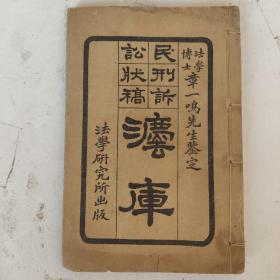 法學
博士
章一鳴先生鑒定
民刑訴
訟狀稿
灋庫
法學研究所出版